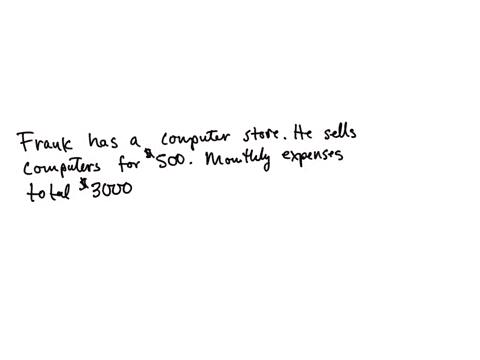 Frank has a computer store. He sells
computers for $500. Monthly expenses
total $3000